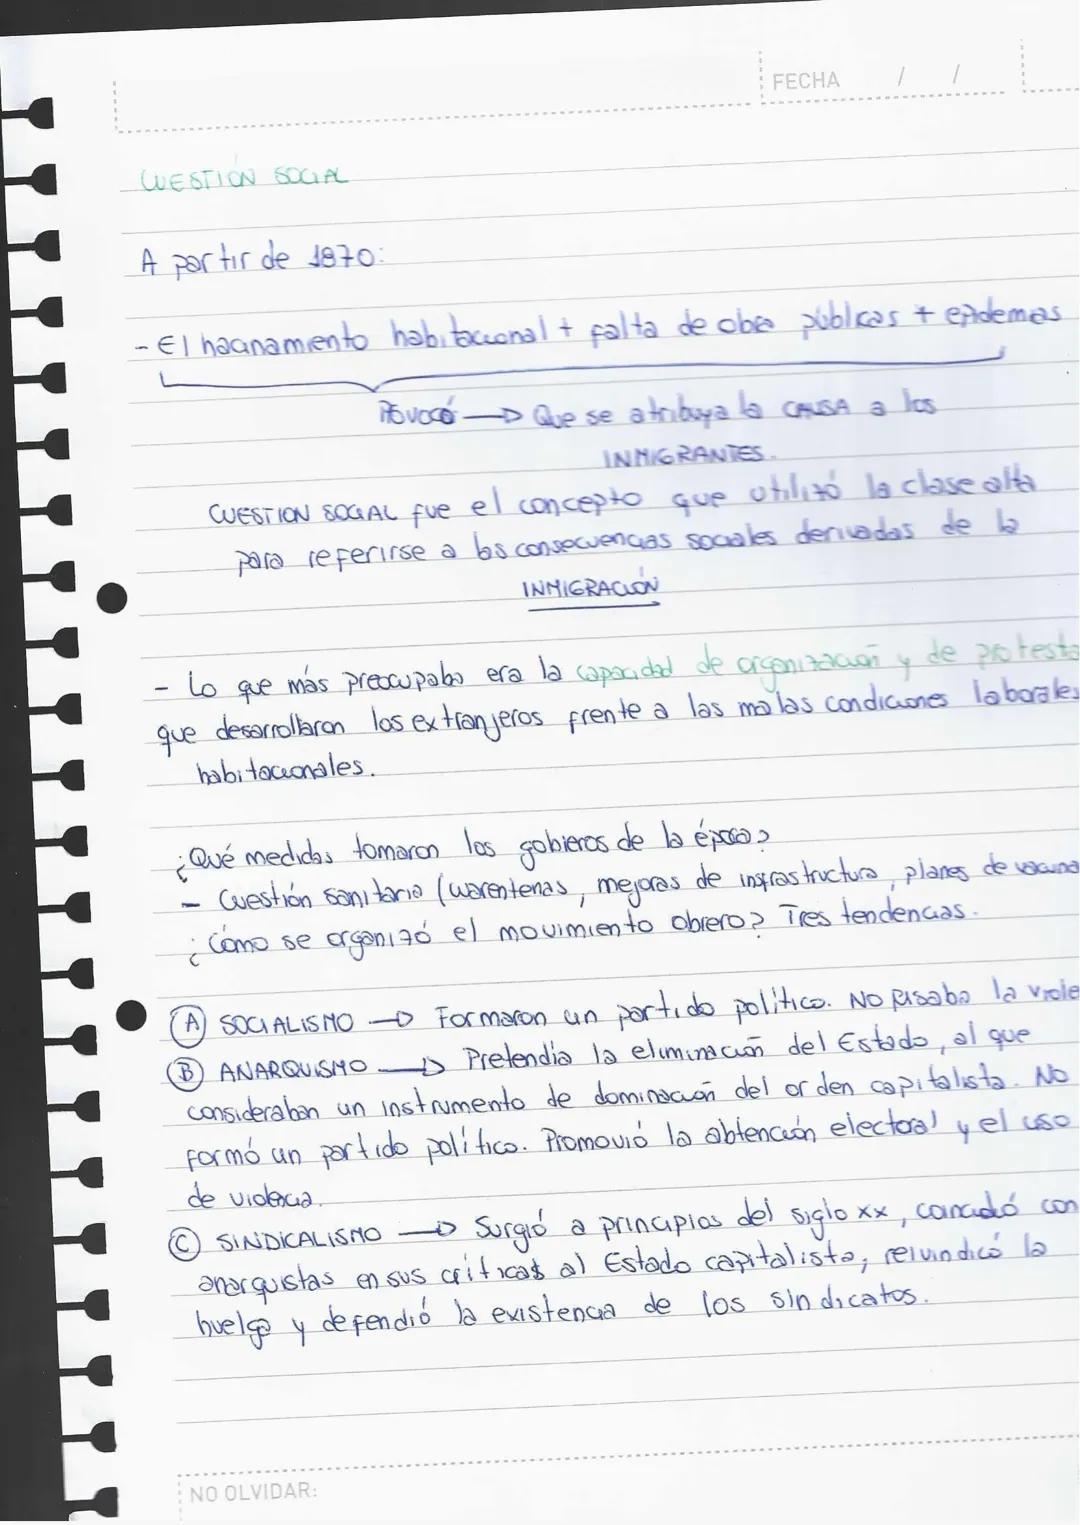 FECHA / /
CUESTIÓN SOCIAL
A partir de 1870:
- El hacinamiento habitacional + falta de obra públicas + epidemias
Provocó → Que se atribuya la CAUSA a los
INMIGRANTES.
CUESTION SOCIAL fue el concepto que utilizó la clase alta
para referirse a las consecuencias sociales derivadas de la
INMIGRACIÓN
- Lo que más preocupaba era la capacidad de organización y de protesta
que desarrollaron los extranjeros frente a las malas condiciones laborales
habitacionales.
¿Qué medidas tomaron los gobieros de la época?
- Cuestión sanitaria (cuarentenas, mejoras de infrastructura, planes de vacuna
¿Cómo se organizó el movimiento obrero? Tres tendencias.
(A) SOCIALISMO → Formaron un partido político. No the la viole
(B) ANARQUISMO → Pretendía la eliminación del Estado, al que
consideraban un instrumento de dominación del orden capitalista. No
formó un partido político. Promovió la obtención electoral y el uso
de violencia.
(C) SINDICALISMO → Surgió a principios del siglo XX, coincidió con
anarquistas en sus críticas al Estado capitalista, reivindicó la
huelga y defendió la existencia de los sindicatos.
NO OLVIDAR: